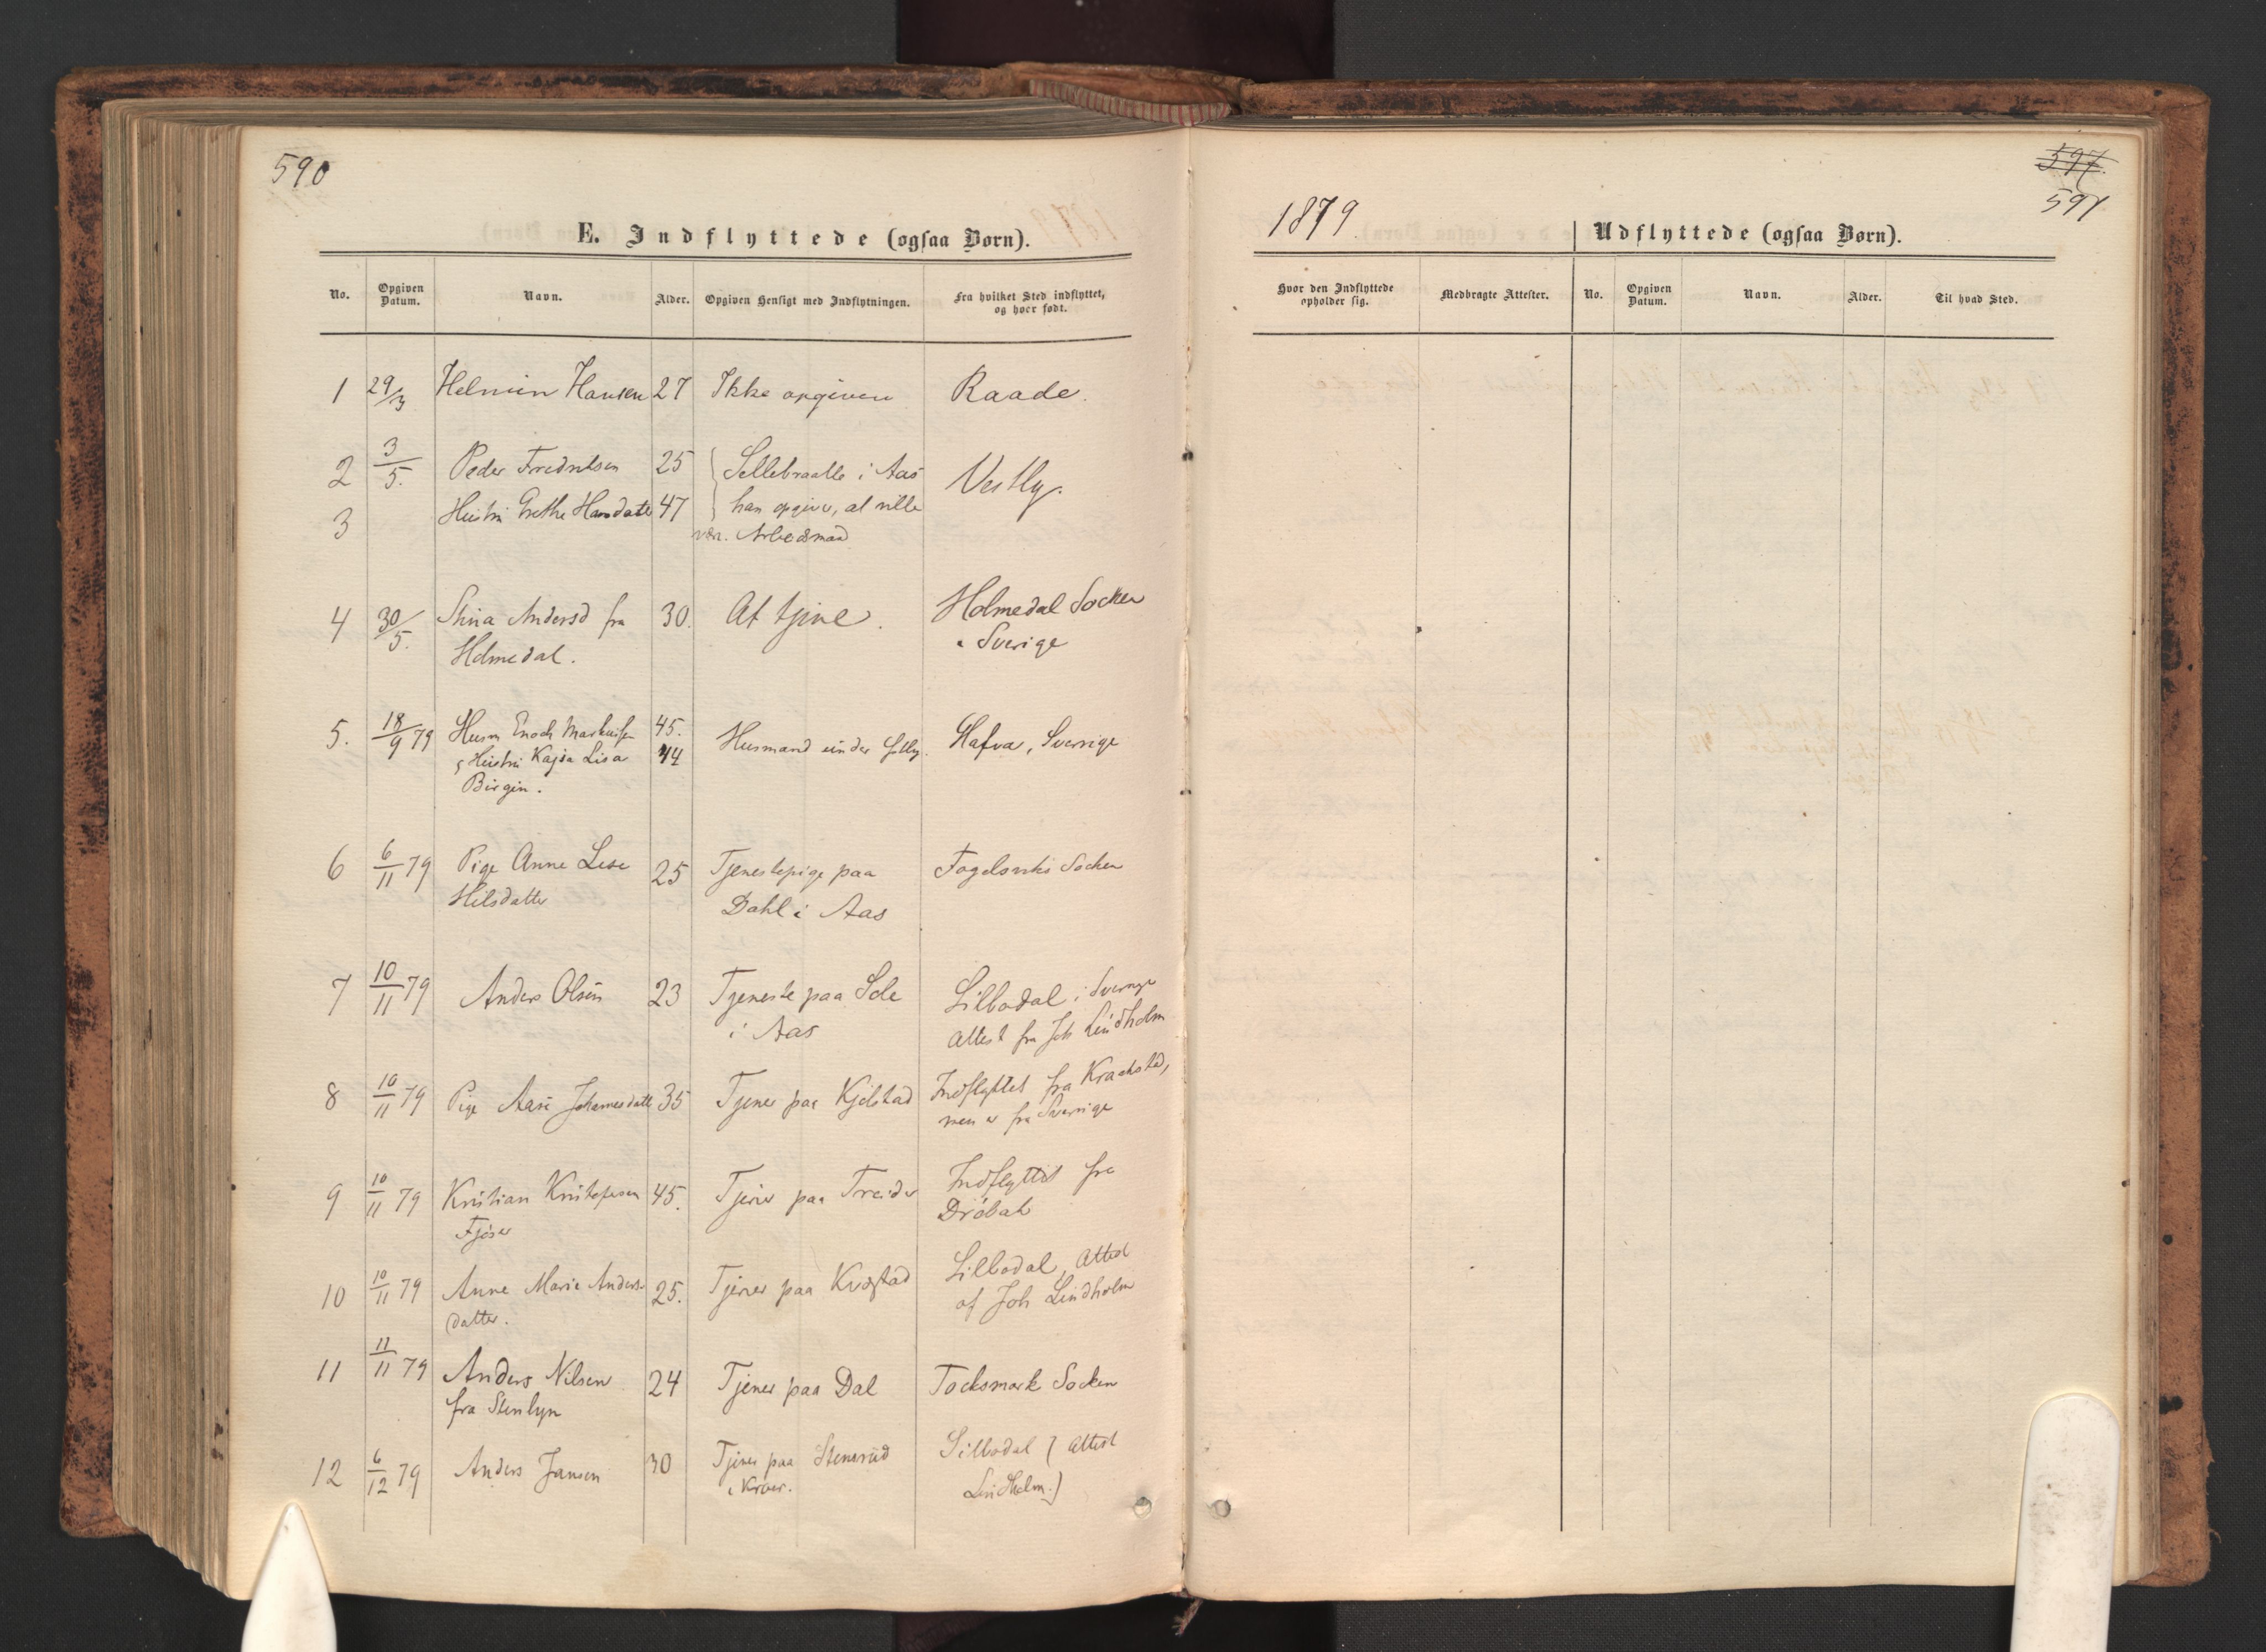 590
E. Indflyttede (ogsaa Børn).
No. Opgiven Datum. Navn. Alder. Opgiven Hensigt med Indflytningen. Fra hvilket Sted indflyttet, og hvor født.
1 29/3 Helmin Hansen 27 Ikke opgiven Raade.
2 3/5. Peder Fredriksen 25 Sellebraatte i Aas Vestby.
3 Hustru Grethe Hansdatter 47 han opgiver, at ville
være Arbeidsmand
4 30/5. Stina Andersd fra 30. At tjene. Holmedal Socken
Holmedal. i Sverige
5. 18/9 79 Husm Enoch Markusen 45. Husmand under Hafva, Sverrige
Hustru Kajsa Lisa 44
Birgin.
6 6/11 79 Pige Anne Lise 25 Tjenestepige paa Fogelsviks Socken
Nilsdatter Dahl i Aas
7 10/11 79 Anders Olsen 23 Tjeneste paa Sole Silbodal i Sverrige
i Aas Attest fra Joh Lindholm
8 10/11 79 Pige Aase Johannesdatter 35 Tjener paa Kjølstad Indflyttet fra Krackstad,
men er fra Sverrige
9 10/11 79 Kristian Kristofersen 45. Tjener paa Treider Indflyttet fra
Fjøser Drøbak
10 10/11 79 Anne Marie Anders- 25. Tjener paa Kvæstad Silbodal, Attest
datter. af Joh Lindholm
11 11/11 79 Anders Nilsen 24 Tjener paa Dal Tocksmark Socken
fra Stenbyn
12 6/12 79 Anders Jansen 30 Tjener paa Stensrud Silbodal (Attest
i Kroer. Lindholm.)
597.
591
1879.
Udflyttede (ogsaa Børn).
Hvor den Indflyttede opholder sig. Medbragte Attester. No. Opgiven Datum. Navn. Alder. Til hvad Sted.